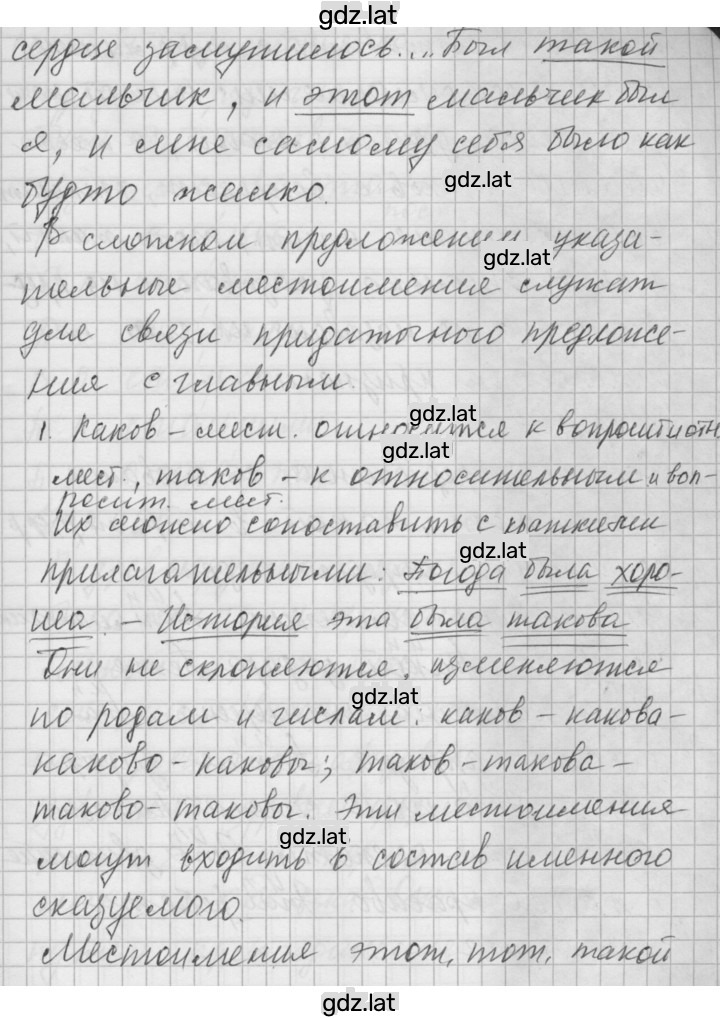 gdz.lat
сердце защемилось... Был такой
мальчик, и этот мальчик был
я, и мне самому себя было как
будто жалко.
gdz.lat
В сложном предложении указа-
gdz.lat
тельные местоимения служат
для связи придаточного предложе-
ния с главным.
gdz.lat
1. Каков – мест. относится к вопросит и отн
gdz.lat
мест., таков – к относительным и воп-
росит. мест.
Их можно сопоставить с краткими
gdz.lat
прилагательными: Погода была хоро-
ша. – История эта была такова
Они не склоняются, изменяются
gdz.lat
по родам и числам: каков – какова –
каково – каковы; таков – такова –
таково – таковы. Эти местоимения
gdz.lat
могут входить в состав именного
сказуемого.
Местоимения этот, тот, такой
gdz.lat